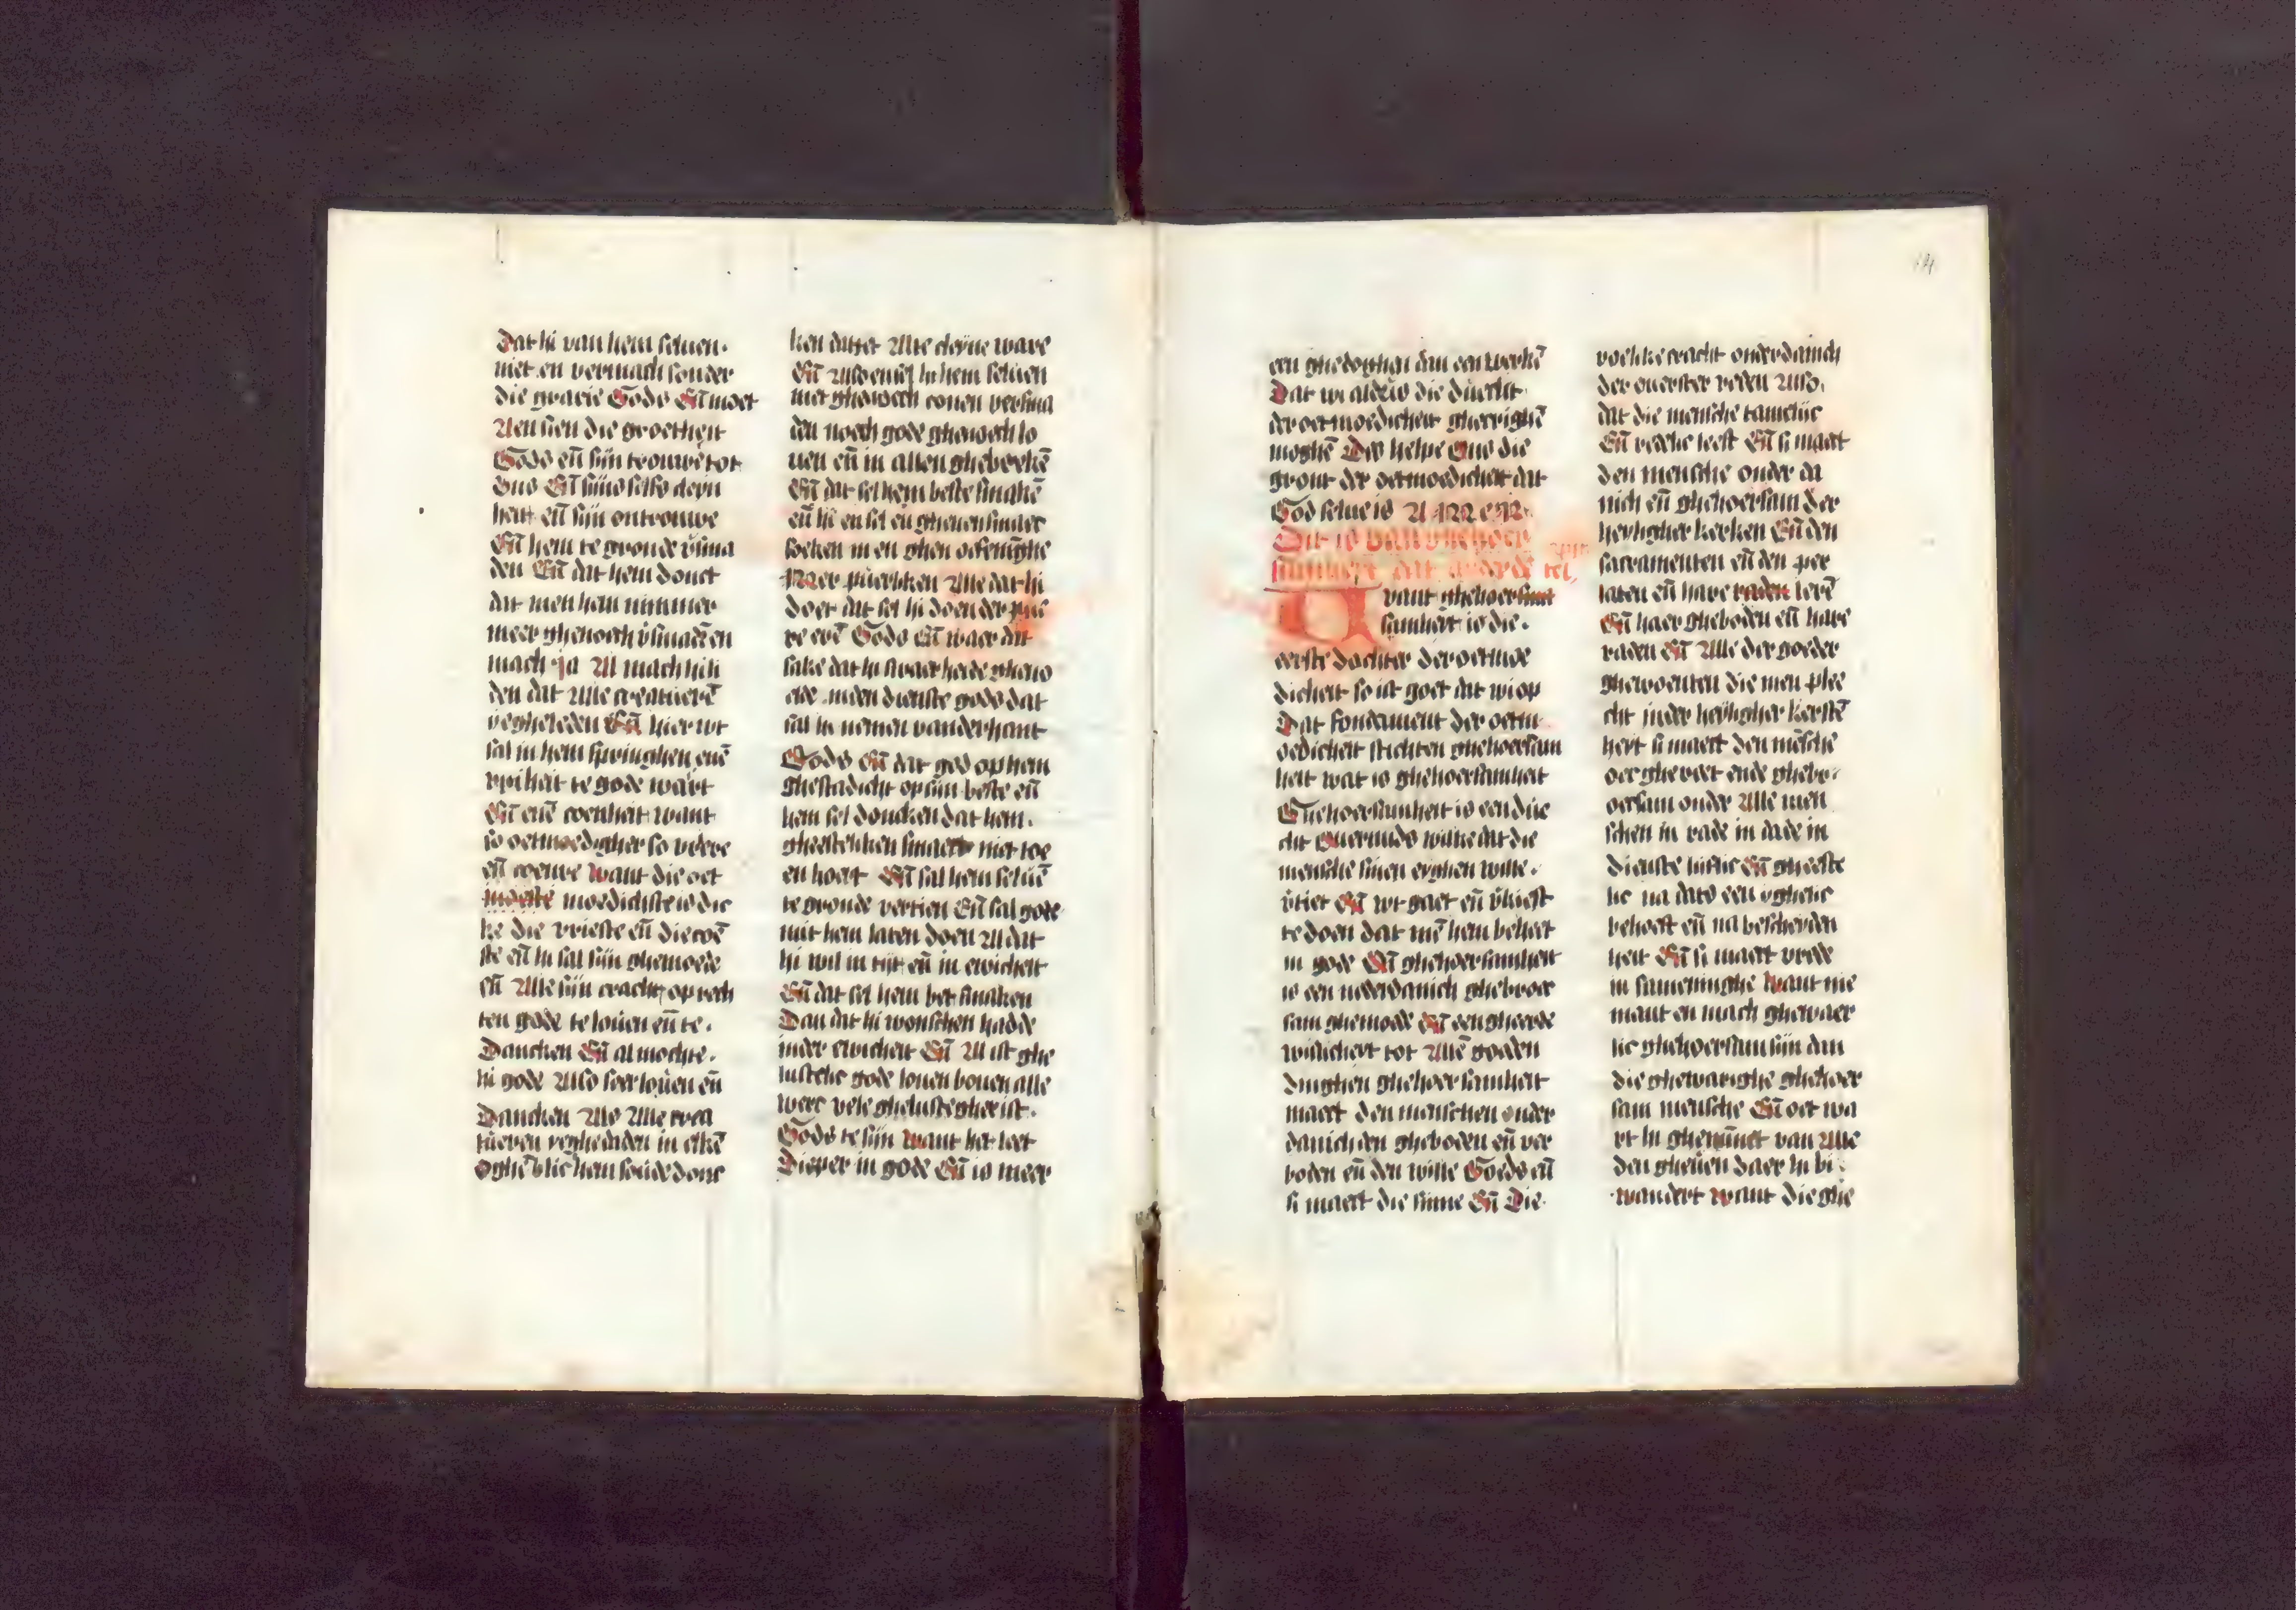 Dat hi van hem seluen.
niet en vermach sonder
die gracie Gods Eñ moet
Aen sien die groetheit
Gods eñ sijn trouwe tot
Ons Eñ sijns selfs cleyn
heit eñ sijn ontrouwe
Eñ hem te gronde v̄sma
den Eñ dat hem donct
dat men hem nimmer
meer ghenoech v̄smadē en
mach ja Al mach hi li
den dat Alle creatuerē
Eñ hier wt
sal in hem springhen enē
vriheit te gode wart
Eñ enē coenheit want
so oetmoedigher so vriere
eñ coenre want die oet
moedichste is die
ke die vrieste eñ die coē
ste eñ hi sal sijn ghemoede
eñ Alle sijn cracht op rech
ten gode te louen eñ te.
Dancken Eñ al mochte.
hi gode Also seer louen eñ
Dancken Als Alle crea
tueren in elkē
hem soude donc
ken dattet Alte cleyne ware
Eñ in hem seluen
niet ghenoech conen versma
den noch gode ghenoech lo
uen eñ in allen ghebrekē
Eñ dat sel hem beste smakē
eñ hi en sel en ghenen smaec
soeken in en ghen oefeninghe
Mer puerliken Alle dat hi
doet dat sel hi doen der pue
re erē Gods Eñ waer dat
sake dat hi
inden dienste gods dat
sal hi nemen vander hant
Gods Eñ dat god op hem
ghestadicht op sijn beste eñ
hem sel doncken dat hem.
gheesteliken smaect niet toe
en hoert Eñ sal hem seluē
te gronde vertien Eñ sal gode
mit hem laten doen Al dat
hi wil in tijt eñ in ewicheit
Eñ dat sel hem bet smaken
Dan dat hi wonschen hadde
inder ewicheit Eñ Al ist ghe
lustelic gode louen bouen alle
werc vele ghelustegher ist.
Gods te sijn want het leet
Dieper in gode Eñ is meer
een ghedoghen dan een werkē
Dat wi aldus die duecht
der oetmoedicheit ghecrighē
moghē Des helpe Ons die
gront der oetmoedicheit dat
God selue is AMEN
Dit is van ghehoer
samheit dat anderde
want ghehoersam
samheit is die.
eerste dochter der oetmoe
dicheit so ist goet dat wi op
Dat fondament der oetm
oedicheit stichten ghehoersam
heit wat is ghehoersamheit
Ghehoersamheit is een due
cht ouermids wilke dat die
mensche sinen eyghen wille.
v̄tiet Eñ wt gaet eñ v̄kiest
te doen dat mē hem beheet
in gode Eñ ghehoersamheit
is een nederdanich ghehoer
sam ghemoede Eñ een gherede
willicheit tot Allē goeden
Dinghen ghehoersamheit
maect den menschen onder
danich den gheboden eñ ver
boden eñ den wille Goeds eñ
si maect die sinne Eñ Die
voelike cracht onderdanich
der ouerster reden Also.
dat die mensche tamelijc
Eñ redelic leeft Eñ si maect
den mensche onder da
nich eñ ghehoersam der
heyligher kerken Eñ den
sacramenten eñ den pre
laten eñ hare raden lerē
Eñ haer gheboden eñ hare
raden Eñ Alle der goeder
ghewoenten die men plee
cht inder heyligher kerstē
heit si maect den mēsche
oec ghereet ende gheho:
oersam onder Alle men
schen in rade in dade in
Dienste lijflic Eñ gheeste
lic na dats een yghelic
behoeft eñ na bescheyden
heit Eñ si maect vrede
in sameninghe want nie
mant en mach ghewaer
lic ghehoersam sijn dan
die ghewarighe ghehoer
sam mensche Eñ oec wa
rt hi ghemint van Alle
den ghenen daer hi bi.
wandert want die ghe